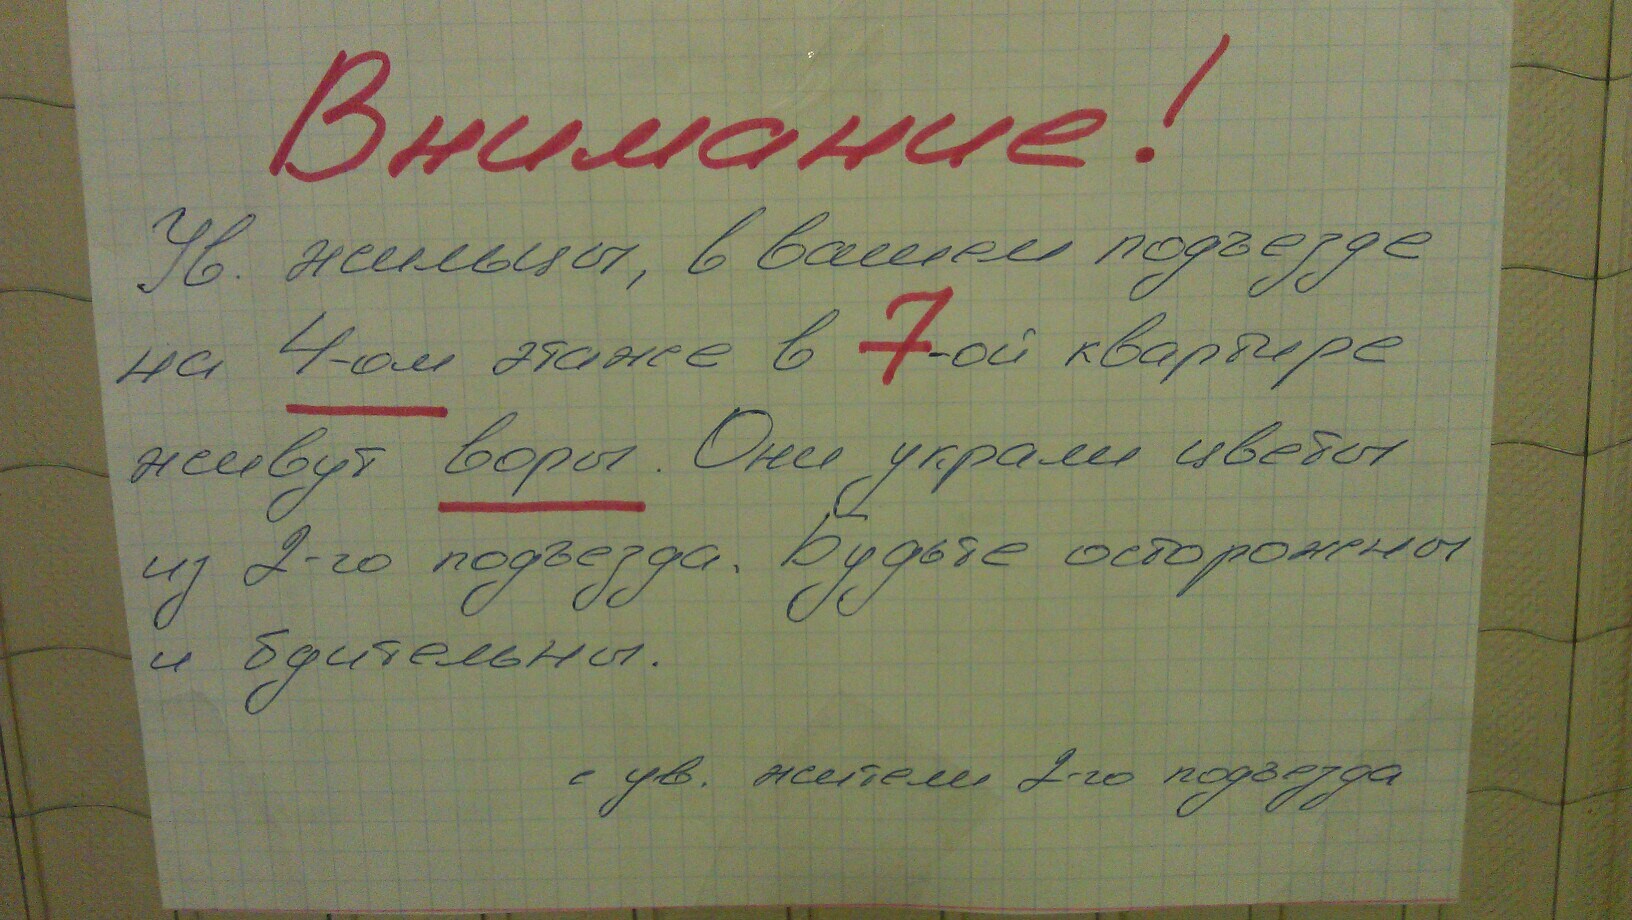 Внимание!
Ув. жильцы, в вашем подъезде
на 4-ом этаже в 7-ой квартире
живут воры. Они украли цветы
из 2-го подъезда. Будьте осторожны
и бдительны.
с ув. жители 2-го подъезда